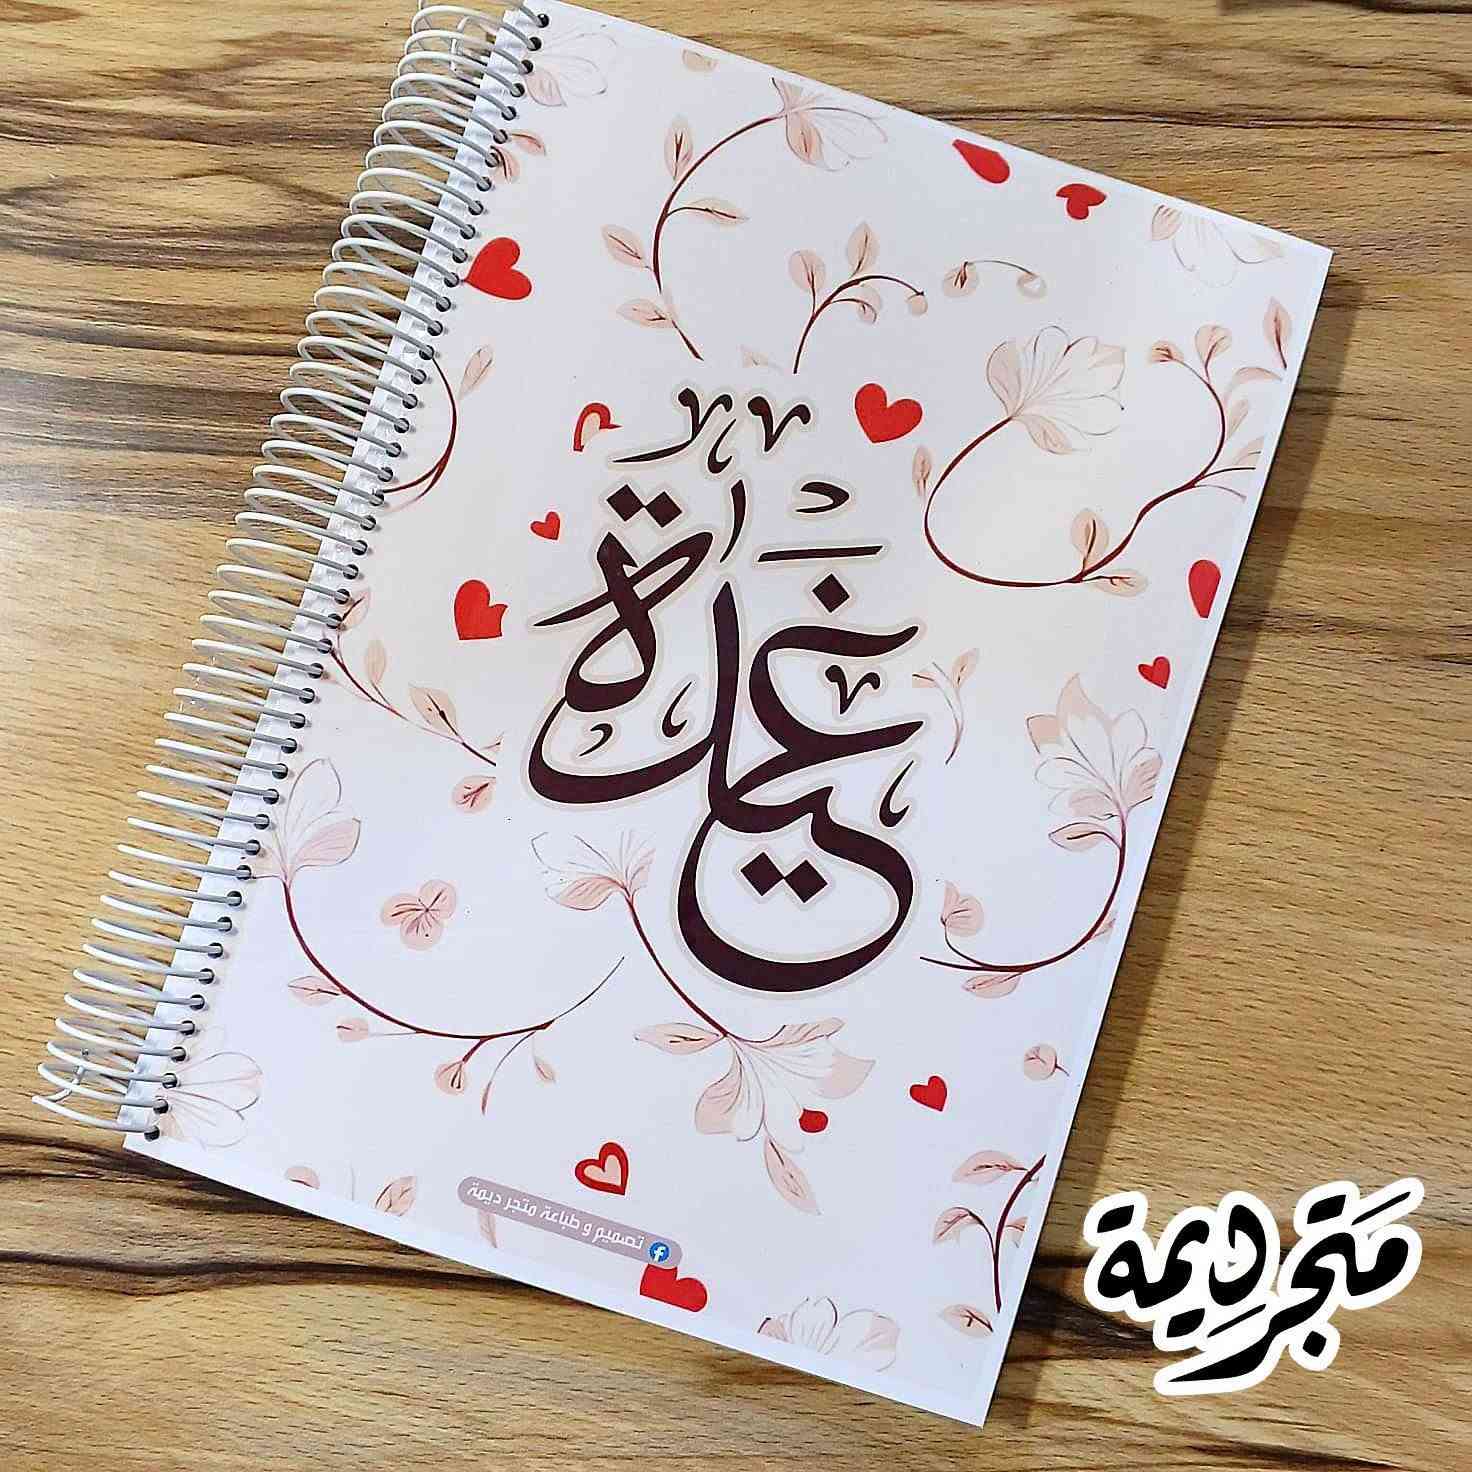 غَيْمة
تصميم و طباعة متجر ديمة
مَتجر ديمة